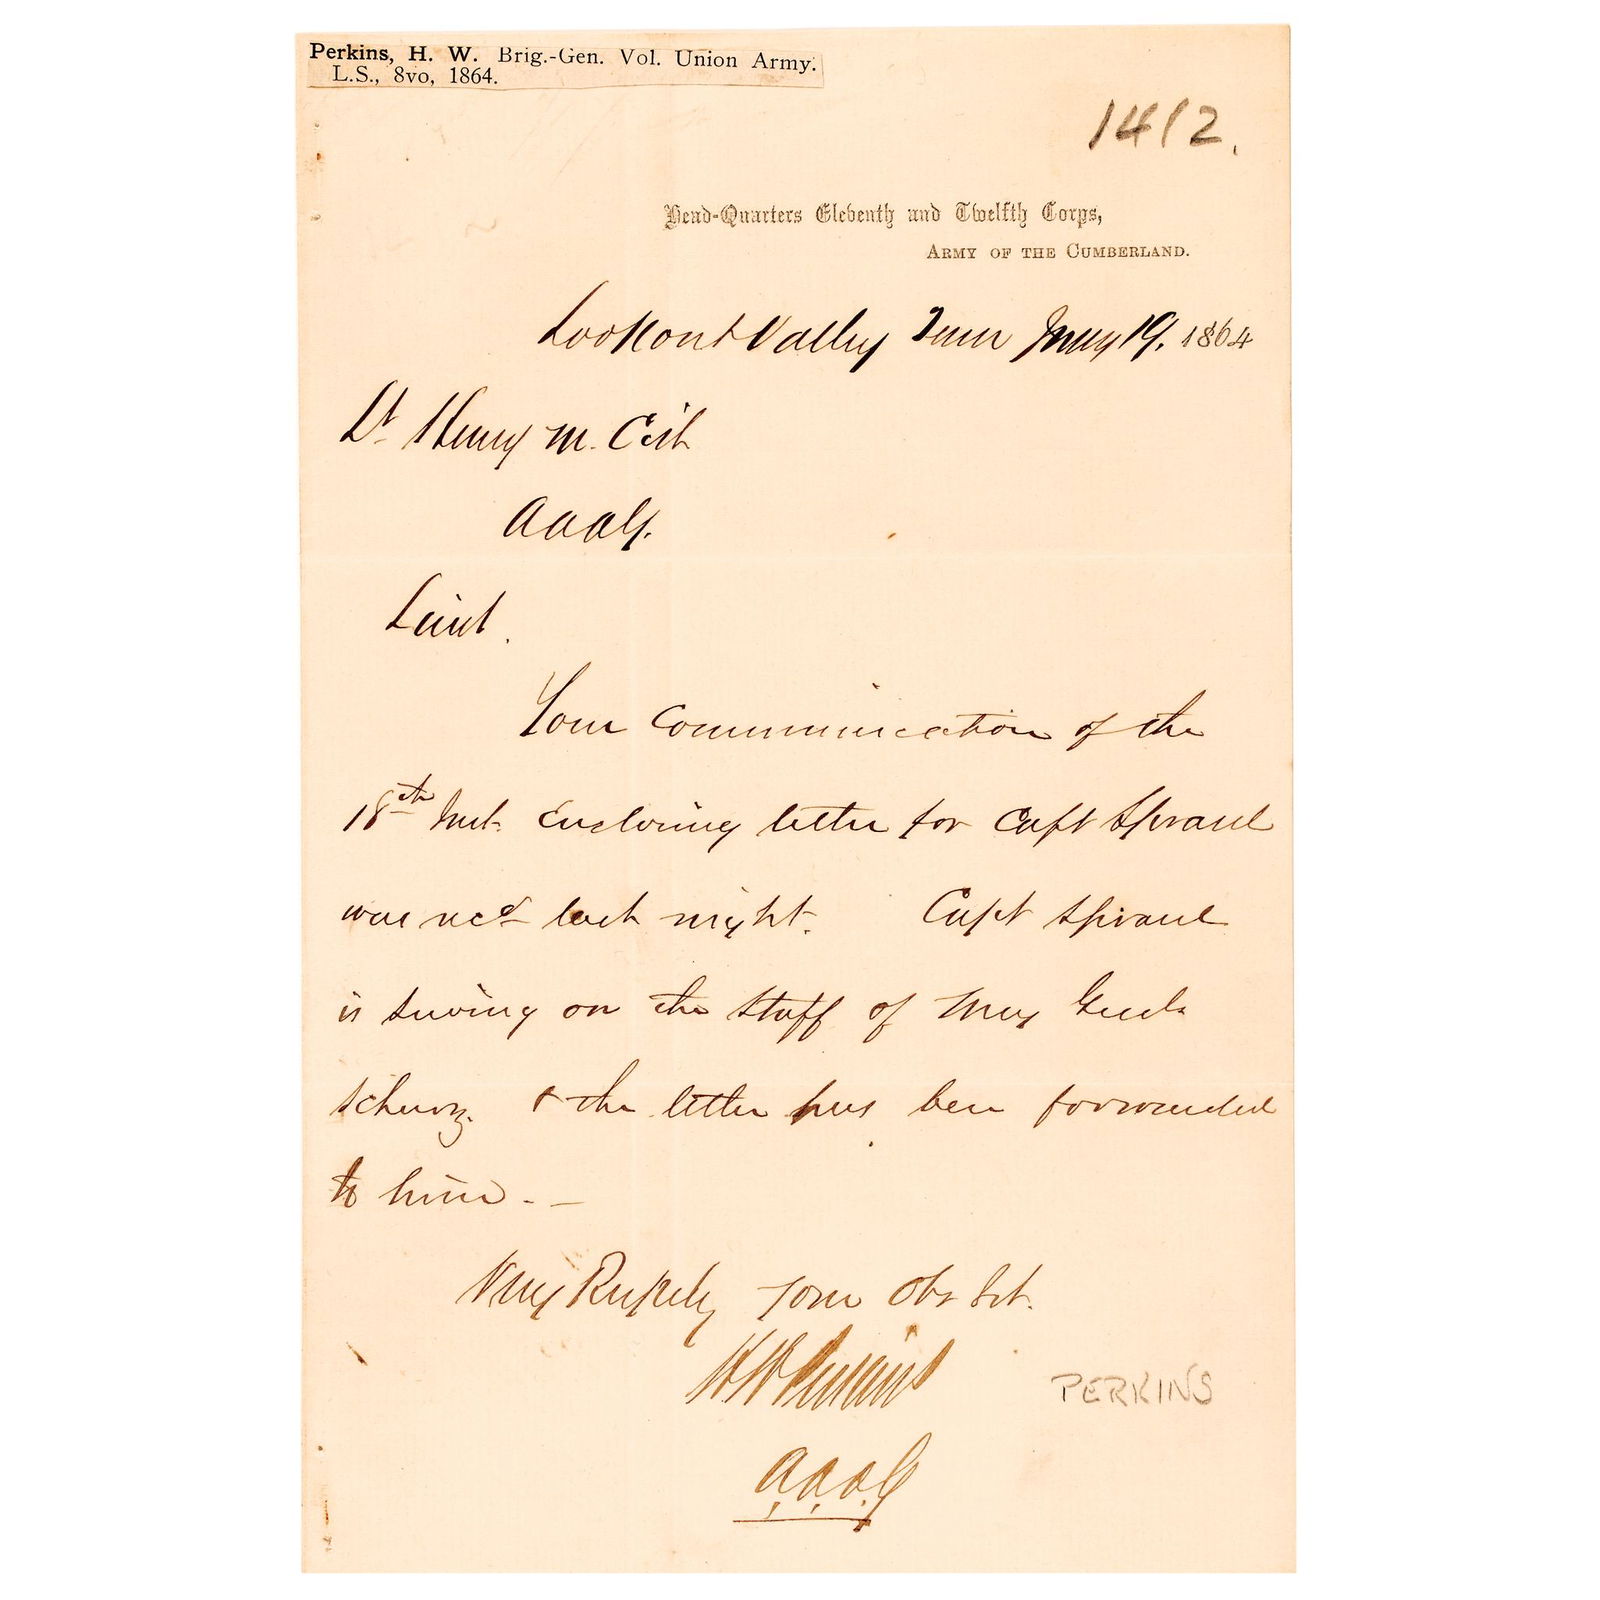 Perkins, H. W. Brig.-Gen. Vol. Union Army.
L.S., 8vo, 1864.
1412.
Head-Quarters Eleventh and Twelfth Corps,
ARMY OF THE CUMBERLAND.
Lookout Valley Tenn Jany 19, 1864
Lt Henry M. Cist
AAAG.
Lieut.
Your communication of the
18th Inst. enclosing letter for Capt
was recd last night. Capt
is serving on the staff of Maj Genl.
Schurz. & the letter has been forwarded
to him. —
Very Respctly Your Obt Svt.
H W Perkins
PERKINS
A.A.A.G